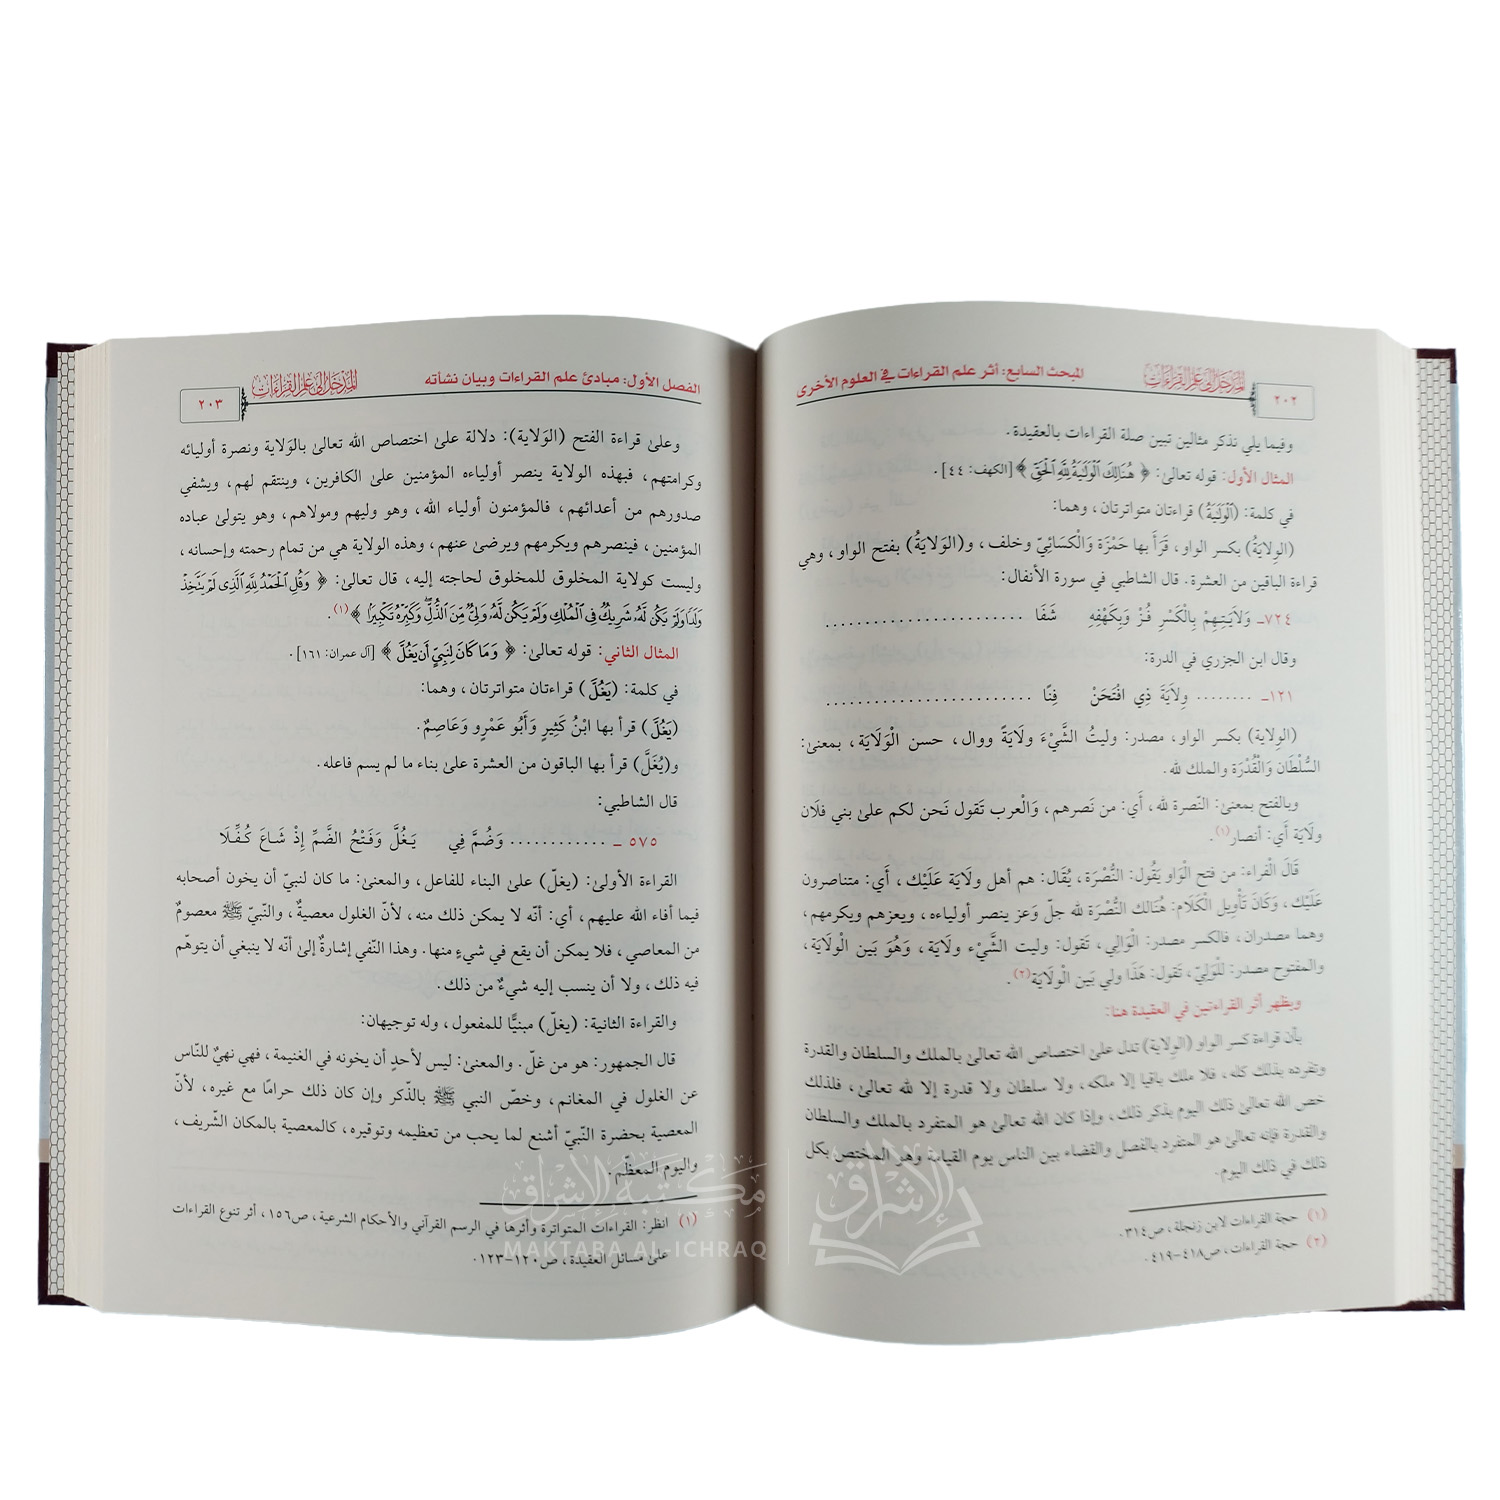 المدخل إلى علم القراءات
المبحث السابع: أثر علم القراءات في العلوم الأخرى
٢٠٢
وفيما يلي نذكر مثالين تبين صلة القراءات بالعقيدة.
المثال الأول: قوله تعالىٰ: ﴿ هُنَالِكَ ٱلْوَلَٰيَةُ لِلَّهِ ٱلْحَقِّ ﴾ [الكهف: ٤٤].
في كلمة: (ٱلْوَلَٰيَةُ) قراءتان متواترتان، وهما:
(الوِلايَةُ) بكسر الواو، قَرَأَ بها حَمْزَة وَالْكسَائِيّ وخلف، و(الوَلايَةُ) بفتح الواو، وهي
قراءة الباقين من العشرة. قال الشاطبي في سورة الأنفال:
٧٢٤ـ وَلاَيَتِهِمْ بِالْكَسْرِ فُـزْ وَبِكَهْفِهِ شَفَا ........................
وقال ابن الجزري في الدرة:
١٢١ـ ........ وِلاَيَةَ ذِي افْتَحَنْ فِنًا ........................
(الوِلاية) بكسر الواو، مصدر: وليتُ الشَّيْءَ ولَايَةً ووال، حسن الْوَلَايَة، بمعنىٰ:
السُّلْطَان وَالْقُدْرَة والملك لله.
وبالفتح بمعنىٰ: النّصرة لله، أَي: من نَصرهم، وَالْعرب تَقول نَحن لكم علىٰ بني فلَان
ولَايَة أَي: أنصار(١).
قَالَ الْفراء: من فتح الْوَاو يَقُول: النُّصْرَة، يُقَال: هم أهل ولَايَة عَلَيْك، أَي: متناصرون
عَلَيْك، وَكَانَ تَأْوِيل الْكَلَام: هُنَالك النُّصْرَة لله جلّ وَعز ينصر أولياءه، ويعزهم ويكرمهم،
وهما مصدران، فالكسر مصدر: الْوَالِي، تَقول: وليت الشَّيْء ولَايَة، وَهُوَ بَين الْولَايَة،
والمفتوح مصدر: للْوَلِيّ، تَقول: هَذَا ولي بَين الْولَايَة(٢).
ويظهر أثر القراءتين في العقيدة هنا:
بأن قراءة كسر الواو (الوِلاية) تدل علىٰ اختصاص الله تعالىٰ بالملك والسلطان والقدرة
وتفرده بذلك كله، فلا ملك باقيا إلا ملكه، ولا سلطان ولا قدرة إلا لله تعالىٰ، فلذلك
خص الله تعالىٰ ذلك اليوم بذكر ذلك، وإذا كان الله تعالىٰ هو المتفرد بالملك والسلطان
والقدرة فإنه تعالىٰ هو المتفرد بالفصل والقضاء بين الناس يوم القيامة وهو المختص بكل
ذلك في ذلك اليوم.
(١) حجة القراءات لابن زنجلة، ص٣١٤.
(٢) حجة القراءات، ص٤١٨-٤١٩.
الفصل الأول: مبادئ علم القراءات وبيان نشأته
المدخل إلى علم القراءات
٢٠٣
وعلىٰ قراءة الفتح (الوَلاية): دلالة علىٰ اختصاص الله تعالىٰ بالوَلاية ونصرة أوليائه
وكرامتهم، فبهذه الولاية ينصر أولياءه المؤمنين علىٰ الكافرين، وينتقم لهم، ويشفي
صدورهم من أعدائهم، فالمؤمنون أولياء الله، وهو وليهم ومولاهم، وهو يتولىٰ عباده
المؤمنين، فينصرهم ويكرمهم ويرضىٰ عنهم، وهذه الولاية هي من تمام رحمته وإحسانه،
وليست كولاية المخلوق للمخلوق لحاجته إليه، قال تعالىٰ: ﴿ وَقُلِ ٱلْحَمْدُ لِلَّهِ ٱلَّذِى لَمْ يَتَّخِذْ
وَلَدًا وَلَمْ يَكُن لَّهُۥ شَرِيكٌ فِى ٱلْمُلْكِ وَلَمْ يَكُن لَّهُۥ وَلِىٌّ مِّنَ ٱلذُّلِّ وَكَبِّرْهُ تَكْبِيرًا ﴾(١).
المثال الثاني: قوله تعالىٰ: ﴿ وَمَا كَانَ لِنَبِىٍّ أَن يَغُلَّ ﴾ [آل عمران: ١٦١].
في كلمة: (يَغُلَّ) قراءتان متواترتان، وهما:
(يَغُلَّ) قرأ بها ابْنُ كَثِيرٍ وَأَبُو عَمْرٍو وَعَاصِمٌ.
و(يُغَلَّ) قرأ بها الباقون من العشرة علىٰ بناء ما لم يسم فاعله.
قال الشاطبي:
٥٧٥ ـ ............ وَضُمَّ فِي يَغُلَّ وَفَتْحُ الضَّمِّ إِذْ شَاعَ كُفِّلَا
القراءة الأولىٰ: (يغلّ) علىٰ البناء للفاعل، والمعنىٰ: ما كان لنبيّ أن يخون أصحابه
فيما أفاء الله عليهم، أي: أنّه لا يمكن ذلك منه، لأنّ الغلول معصيةٌ، والنّبيّ ﷺ معصومٌ
من المعاصي، فلا يمكن أن يقع في شيءٍ منها. وهذا النّفي إشارةٌ إلىٰ أنّه لا ينبغي أن يتوهّم
فيه ذلك، ولا أن ينسب إليه شيءٌ من ذلك.
والقراءة الثانية: (يغلّ) مبنيًّا للمفعول، وله توجيهان:
قال الجمهور: هو من غلّ. والمعنىٰ: ليس لأحدٍ أن يخونه في الغنيمة، فهي نهيٌ للنّاس
عن الغلول في المغانم، وخصّ النبي ﷺ بالذّكر وإن كان ذلك حرامًا مع غيره، لأنّ
المعصية بحضرة النّبيّ أشنع لما يحب من تعظيمه وتوقيره، كالمعصية بالمكان الشّريف،
واليوم المعظّم.
(١) انظر: القراءات المتواترة وأثرها في الرسم القرآني والأحكام الشرعية، ص١٥٦، أثر تنوع القراءات
علىٰ مسائل العقيدة، ص١٢٠-١٢٣.
مكتبة الإشراق
MAKTABA AL-ICHRAQ
الإشراق